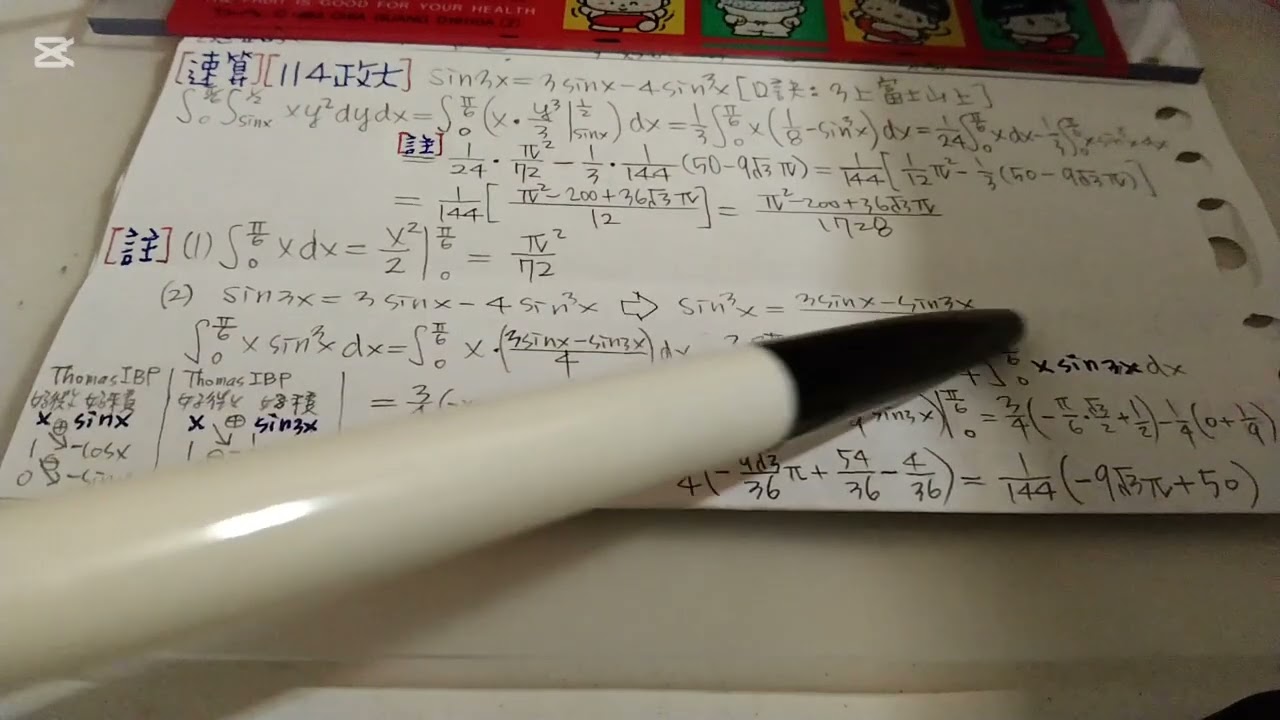 THE FRUIT IS GOOD FOR YOUR HEALTH
[速算][114政大] sin3x=3sinx-4sin³x [口訣:3上富士山上]
∫₀^{π/6}∫_{sinx}^{1/2} xy²dydx=∫₀^{π/6}(x·y³/3|_{sinx}^{1/2})dx=1/3∫₀^{π/6}x(1/8-sin³x)dx=1/24∫₀^{π/6}xdx-1/3∫₀^{π/6}xsin³xdx
[註] 1/24·π²/72-1/3·1/144(50-9√3π)=1/144[1/12π²-1/3(50-9√3π)]
=1/144[(π²-200+36√3π)/12]=(π²-200+36√3π)/1728
[註](1)∫₀^{π/6}xdx=x²/2|₀^{π/6}=π²/72
(2) sin3x=3sinx-4sin³x ⇨ sin³x=3sinx-sin3x
∫₀^{π/6}xsin³xdx=∫₀^{π/6}x·(3sinx-sin3x)/4)dx
xsin3xdx
ThomasIBP ThomasIBP
x ⊕ sinx x ⊕ sin3x
=3/4(-x
sin3x)|₀^{π/6}=3/4(-π/6·√3/2+1/2)-1/4(0+1/9)
1 -cosx 1
0
π+54/36-4/36)=1/144(-9√3π+50)